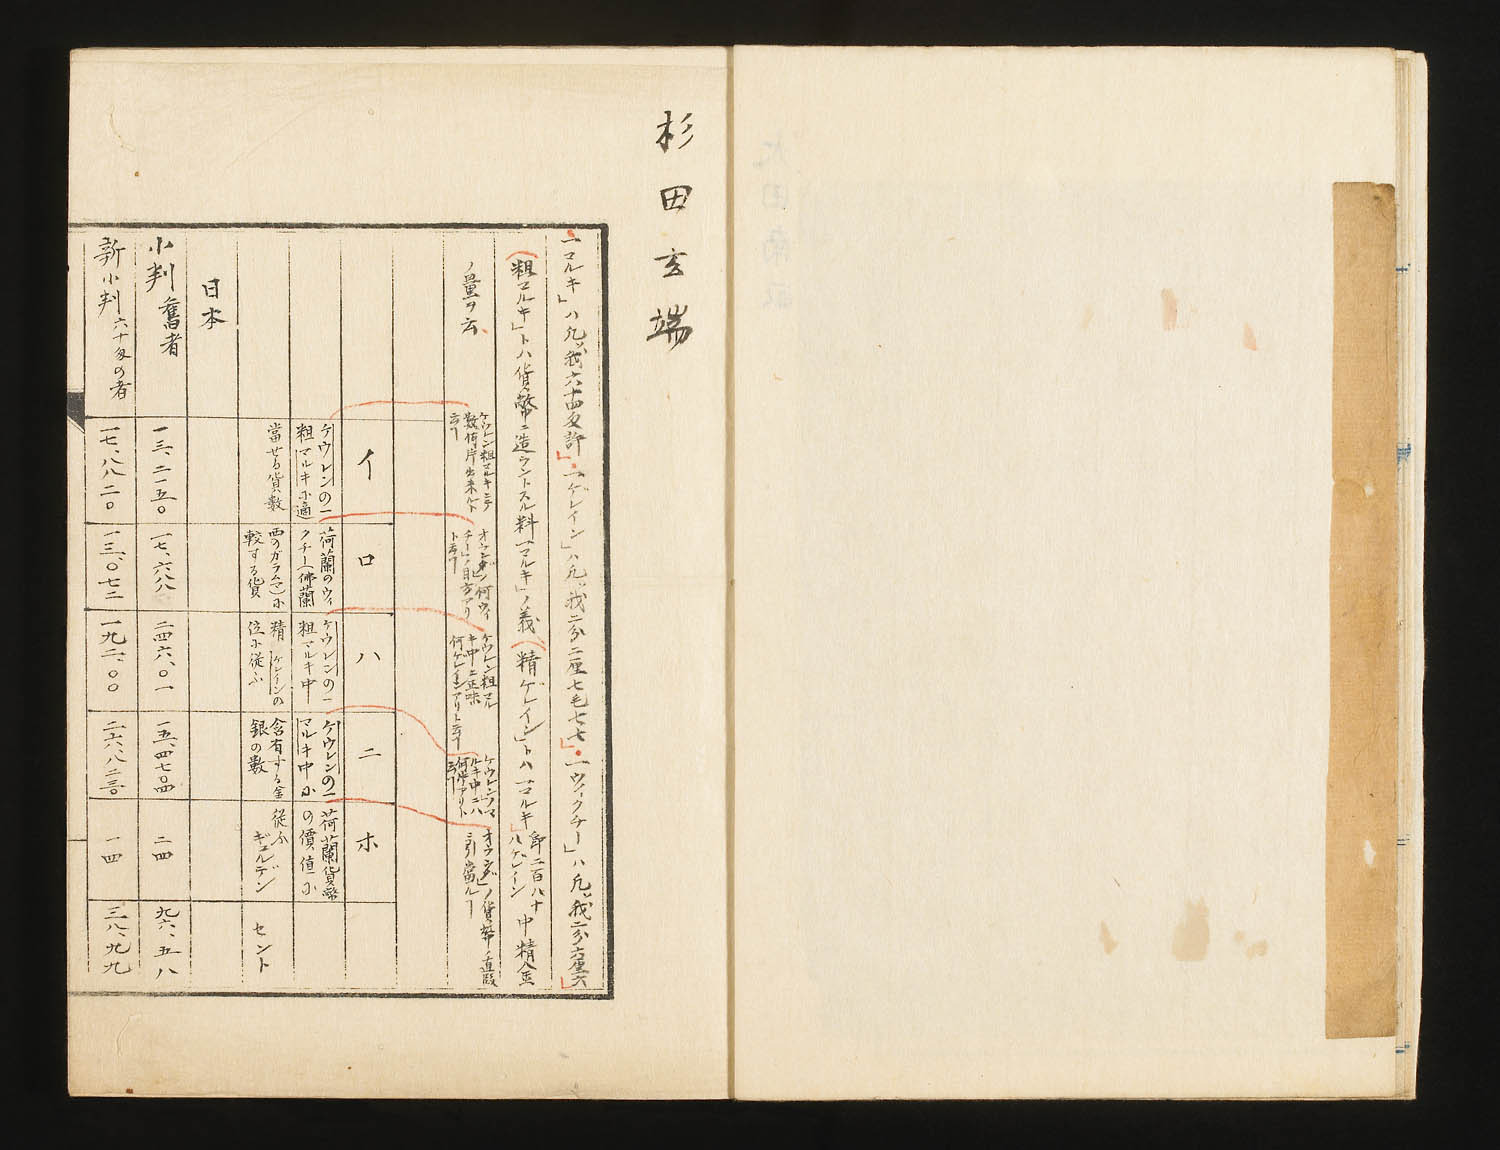 杉田玄端
一マルキ」ハ凡ソ我六十四匁許」一ゲレイン」ハ凡ソ我二分二厘七毛七七」一ウィクチー」ハ凡ソ我二分六厘六」
(粗マルキ」トハ貨幣ニ造ラントスル料一マルキ」ノ義(精ゲレイン」トハ一マルキ」即二百八十八ゲレイン中精金
ノ量ヲ云
ケウレン粗マルキニテ
数何片出来ルト
云フ
オランダノ何ウィ
チー」ノ目方アリ
ト云フ
ケウレン粗マル
キ中ニ正味
何ゲレインアリト云フ
ケウレンノマ
ルキ中ニハ
何程アリト
云フ
オランダ」ノ貨幣ノ直段
ニ引當ル
イ
ロ
ハ
ニ
ホ
ケウレンの一
粗マルキ小適
當せる貨数
荷蘭のウィ
クチー(佛蘭
西のガラムマ)小
較する貨
ケウレンの一
粗マルキ中
精ゲレインの
位小従ふ
ケウレンの一
マルキ中小
含有する金
銀の数
荷蘭貨幣
の價値小
従ふ
ギュルデン
セント
日本
小判 舊者
一三、二一五〇
一七、六八八
二四六、〇一
一五、四七〇四
二四
九六、五八
新小判 六十匁の者
一七、八八二〇
一三、〇七二
一九二、〇〇
二六、八二三〇
一四
三八、九九